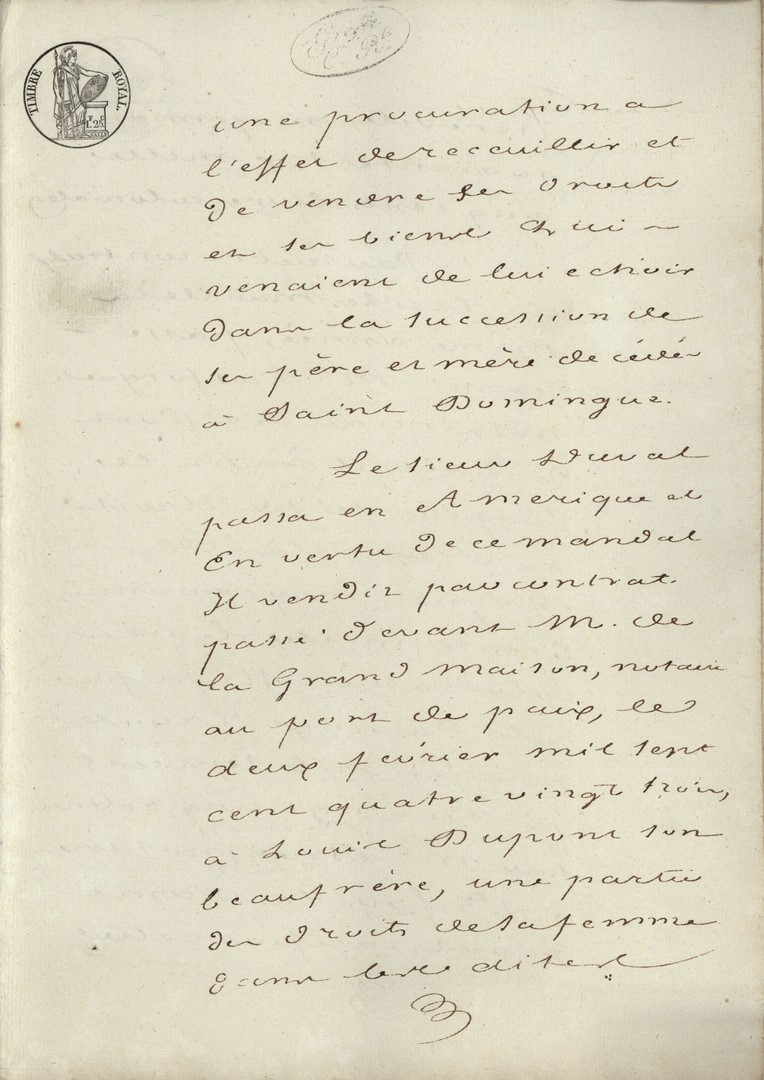 TIMBRE ROYAL.
1. 25
une procuration a
l'effet de reccuillir et
De vendre ses Droits
et ses biens qui
venaient de lui echoir
Dans la succession de
ses père et mère décédés
à Saint Domingue.
Le sieur Duval
passa en Amerique et
En vertu De ce mandat
Il vendit par contrat
passé Devant M. de
la Grand maison, notaire
au port de paix, le
deux février mil sept
cent quatre vingt trois,
à Louis Dupont son
beaufrère, une partie
Des Droits de sa femme
Dans les dites